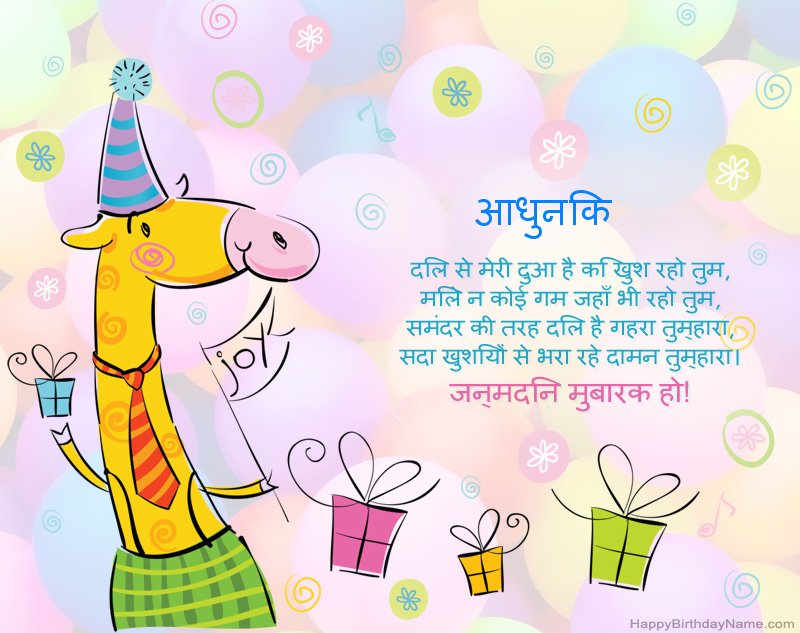 आधुनकि
दलि से मेरी दुआ है क िखुश रहो तुम,
मलिे न कोई गम जहाँ भी रहो तुम,
समंदर की तरह दलि है गहरा तुम्हारा,
सदा खुशयिों से भरा रहे दामन तुम्हारा।
जन्मदनि मुबारक हो!
joy
HappyBirthdayName.com